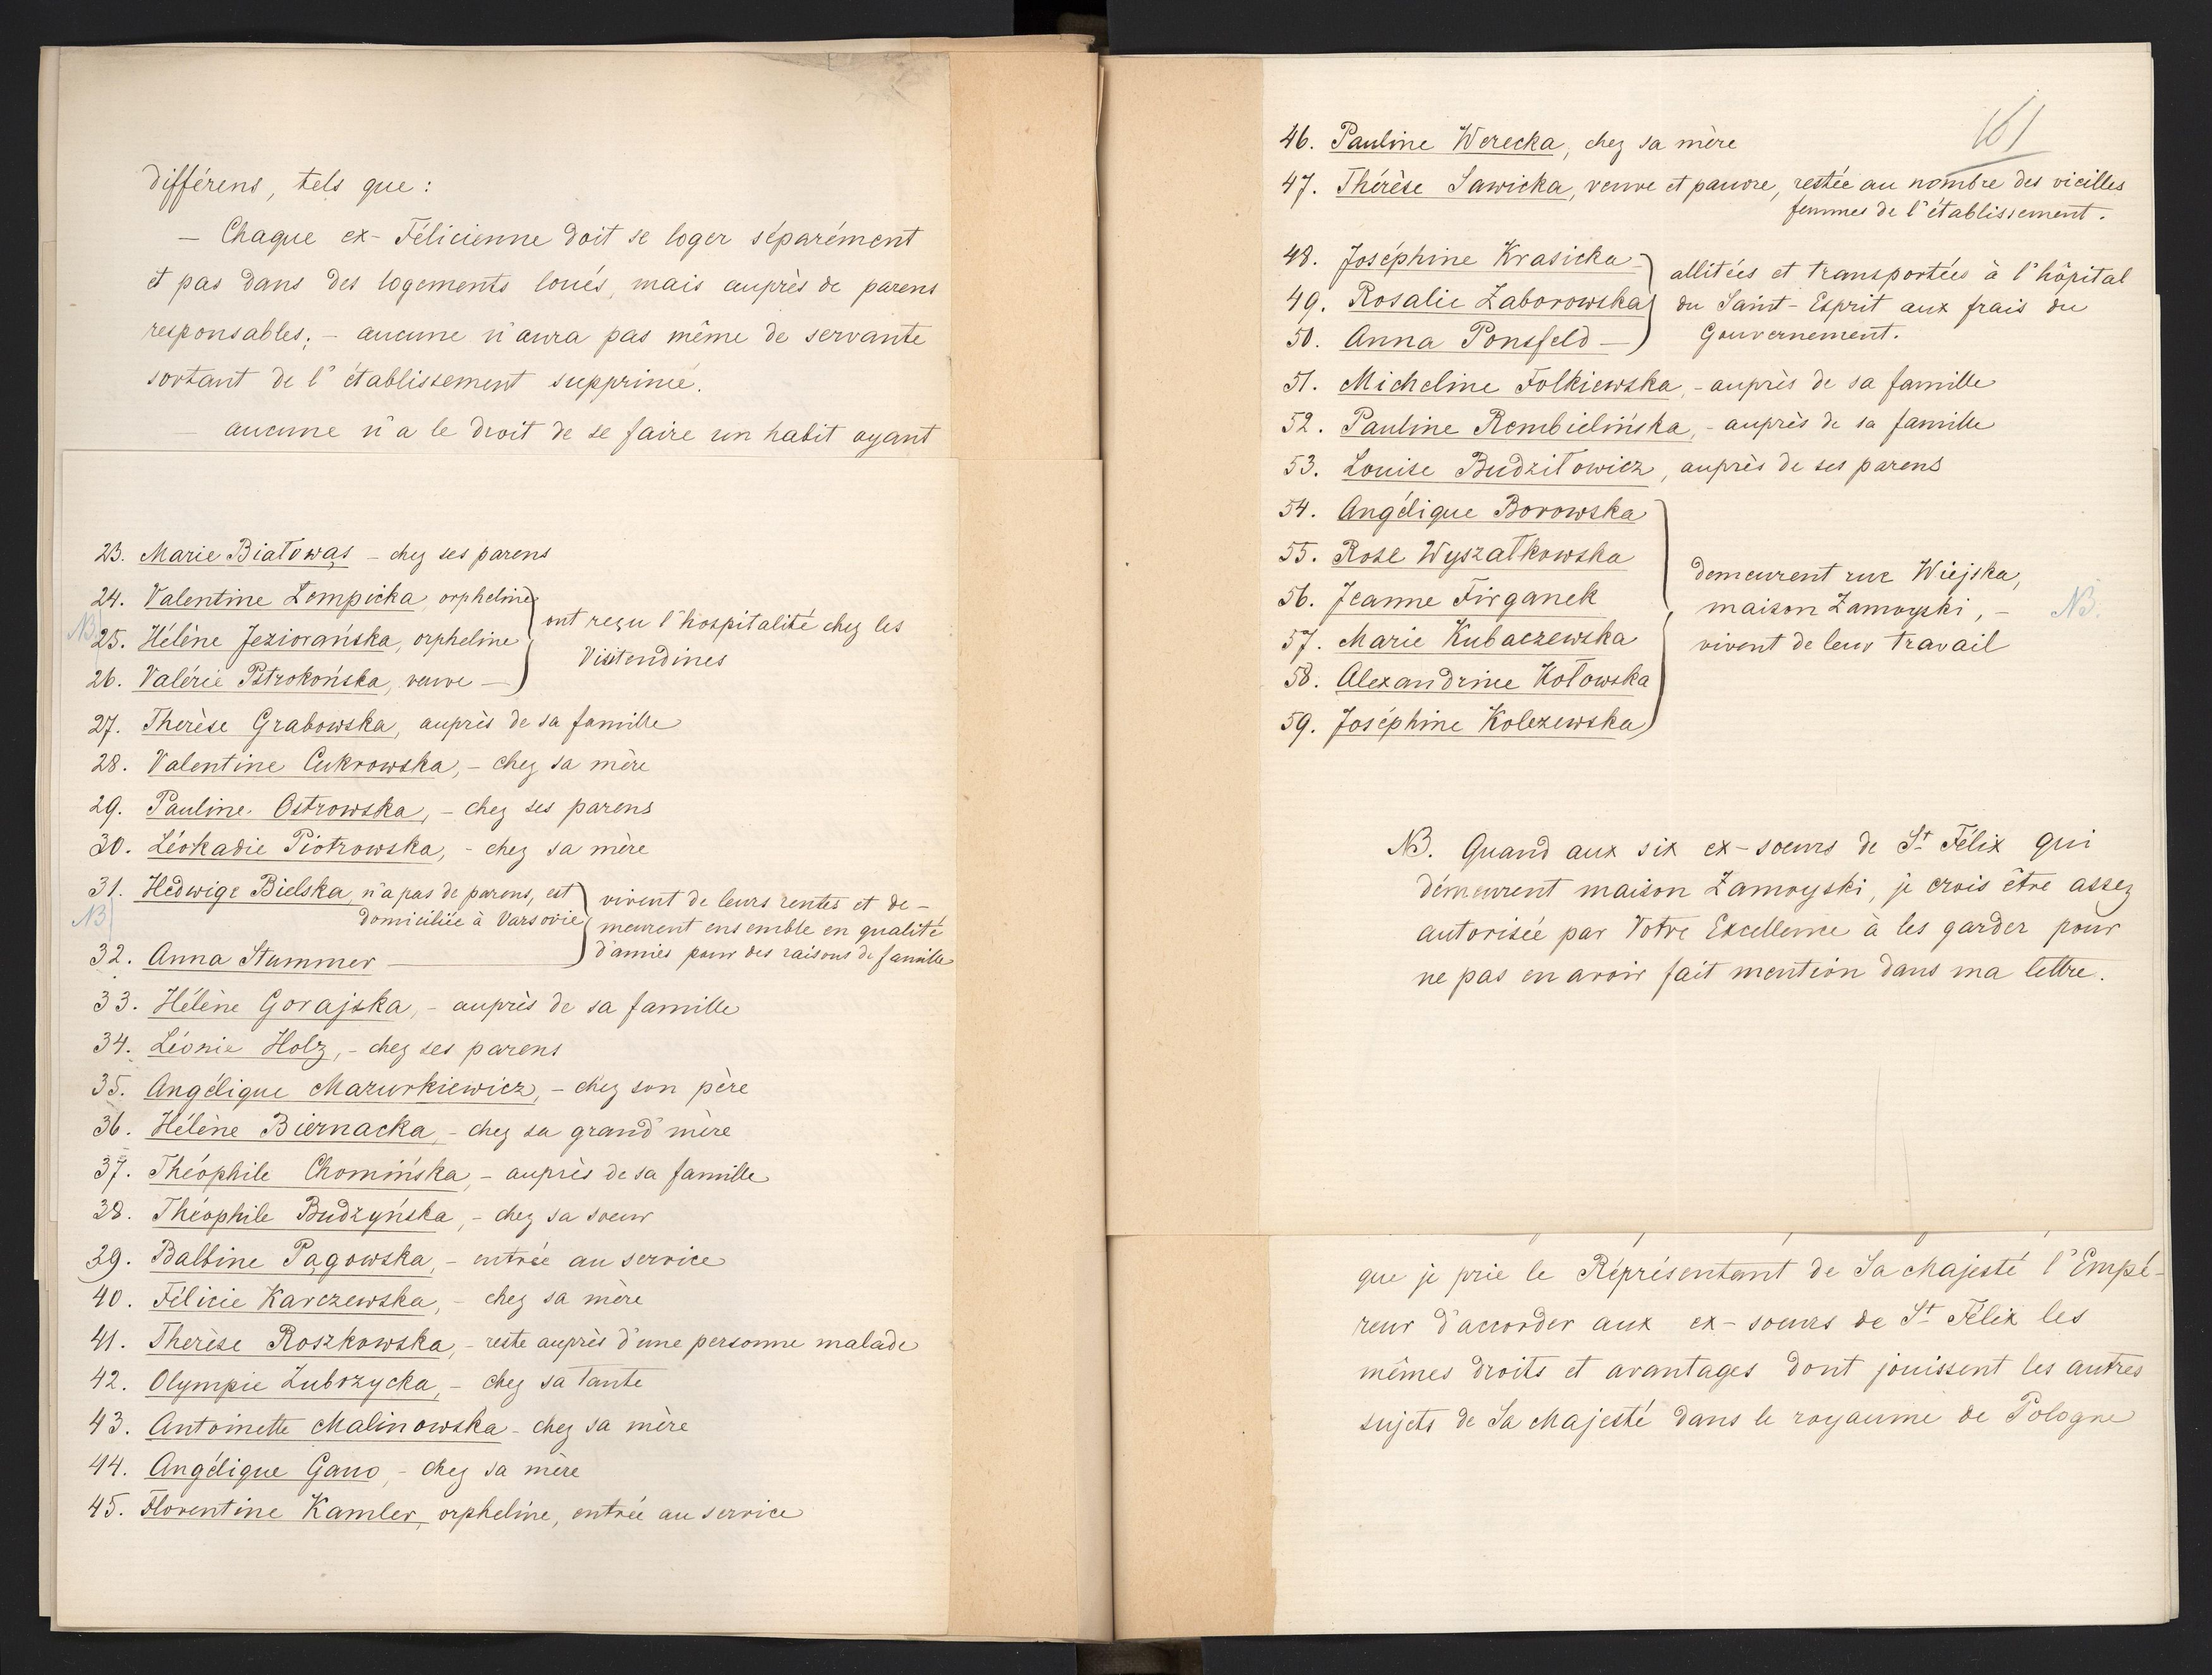 différens, tels que :
— Chaque ex-Félicienne doit se loger séparément
et pas dans des logements loués, mais auprès de parens
responsables; — aucune n'aura pas même de servante
sortant de l'établissement supprimé.
aucune n'a le droit de se faire un habit ayant
23. Marie Białowąs – chez ses parens
24. Valentine Łempicka orpheline
NB 25. Hélène Jeziorańska, orpheline
26. Valérie Pstrokońska, veuve —
ont reçu l'hospitalité chez les
Visitendines
27. Therèse Grabowska, auprès de sa famille
28. Valentine Cukrowska, – chez sa mère
29. Pauline Ostrowska, – chez ses parens
30. Léokadie Piotrowska, - chez sa mère
31. Hedwige Bielska, n'a pas de parens, est
domiciliée à Varsovie
NB
32. Anna Stummer —
vivent de leurs rentes et de-
meurent ensemble en qualité
d'amies pour des raisons de famille
33. Hélène Gorajska, – auprès de sa famille
34. Léonie Holz, – chez ses parens
35. Angélique Mazurkiewicz, – chez son père
36. Hélène Biernacka, – chez sa grand'mère
37. Théophile Chomińska, – auprès de sa famille
38. Théophile Budzyńska, – chez sa soeur
39. Balbine Pągowska, – entrée au service
40. Félicie Karczewska, – chez sa mère
41. Therèse Roszkowska, – reste auprès d'une personne malade
42. Olympie Zubrzycka, – chez sa tante
43. Antoinette Malinowska – chez sa mère
44. Angélique Gano, – chez sa mère
45. Florentine Kamler, orpheline, entrée au service
161
46. Pauline Werecka, chez sa mère
47. Thérèse Sawicka, veuve et pauvre, restée au nombre des vieilles
femmes de l'établissement.
48. Joséphine Krasicka
49. Rosalie Zaborowska
50. Anna Ponsfeld —
allitées et transportées à l'hôpital
du Saint-Esprit aux frais du
Gouvernement.
51. Micheline Folkiewska, – auprès de sa famille
52. Pauline Rembielińska, – auprès de sa famille
53. Louise Budziłowicz, auprès de ses parens
54. Angélique Borowska
55. Rose Wyszatkowska
56. Jeanne Firganek
57. Marie Kubaczewska
58. Alexandrine Kotowska
59. Joséphine Kolczewska
demeurent rue Wiejska,
maison Zamoyski, –
vivent de leur travail
NB.
NB. Quand aux six ex-soeurs de St Félix qui
démeurent maison Zamoyski, je crois être assez
autorisée par Votre Excellence à les garder pour
ne pas en avoir fait mention dans ma lettre.
que je prie le Réprésentant de Sa Majesté l'Empé-
reur d'accorder aux ex-soeurs de St Félix les
mêmes droits et avantages dont jouissent les autres
sujets de Sa Majesté dans le royaume de Pologne